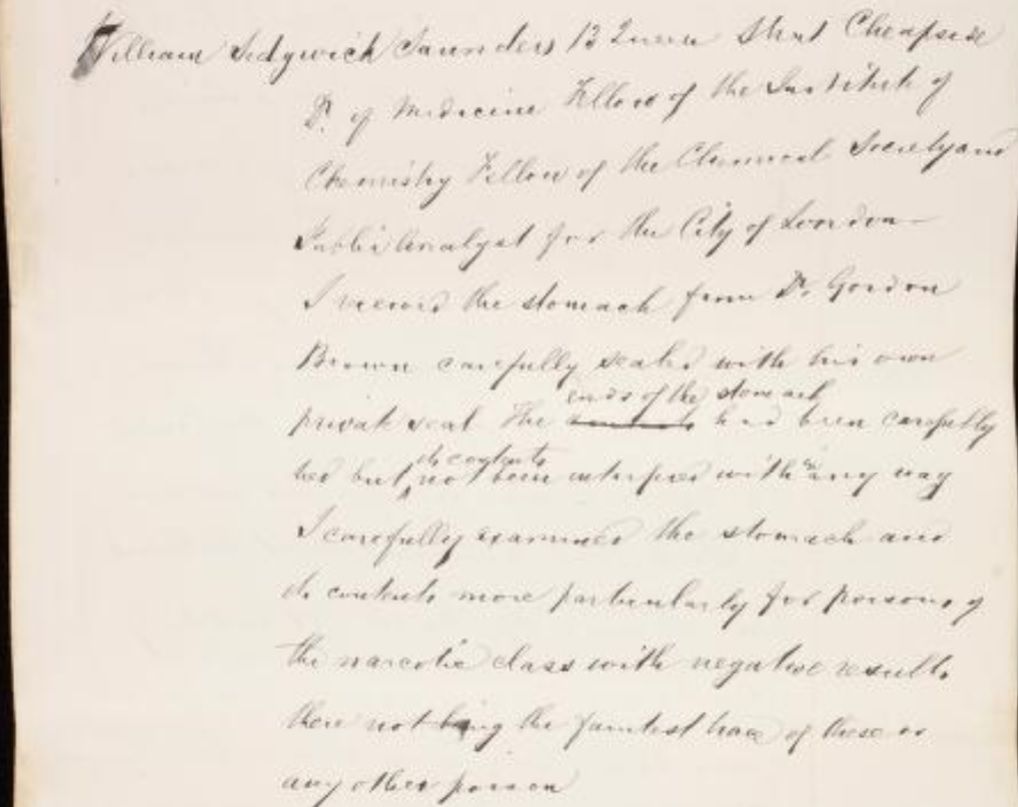 William Sedgwick Saunders 13 Queen Street Cheapside
Dr. of Medicine Fellow of the Institute of
Chemistry Fellow of the Chemical Society and
Public Analyst for the City of London
I received the stomach from Dr. Gordon
Brown carefully sealed with his own
ends of the stomach
private seal The had been carefully
its contents in
tied but not been interfered with any way
I carefully examined the stomach and
its contents more particularly for poisons of
the narcotic class with negative results
there not being the faintest trace of these or
any other poison